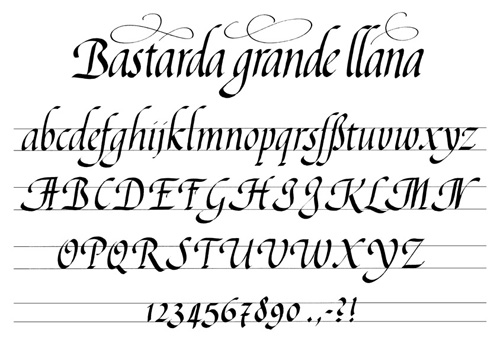 Bastarda grande llana
abcdefghijklmnopqrsſßtuvwxyz
ABCDEFGHIJKLMN
OPQRSTUVWXYZ
1234567890 .,-?!